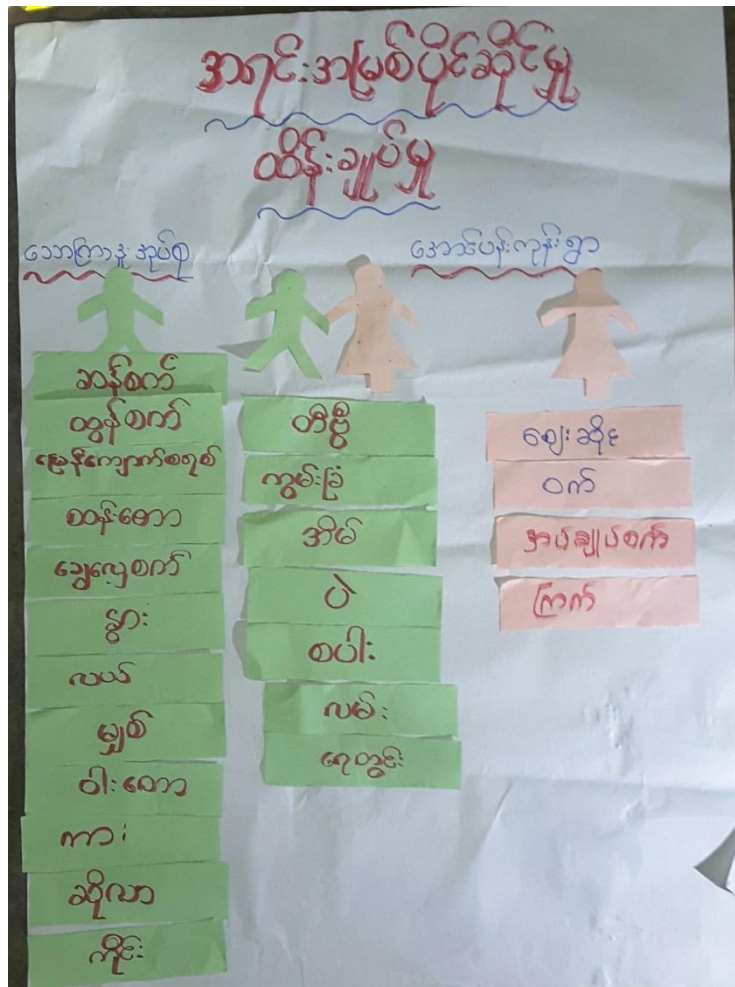 အရင်းအမြစ်ပိုင်ဆိုင်မှု
ထိန်းချုပ်မှု
သောကြာဒူးအုပ်စု
အောင်ပန်းကုန်းရွာ
ဆန်စက်
ထွန်စက်
မြေနီကျောက်စရစ်
စတန်တော
ချွေလှေ့စက်
နွား
လယ်
မျှစ်
ဝါးတော
ကား
ဆိုလာ
ကိုင်း
တီဗွီ
ကွမ်းခြံ
အိမ်
ပဲ
စပါး
လမ်း
ရေတွင်း
ဈေးဆိုင်
ဝက်
အပ်ချုပ်စက်
ကြက်